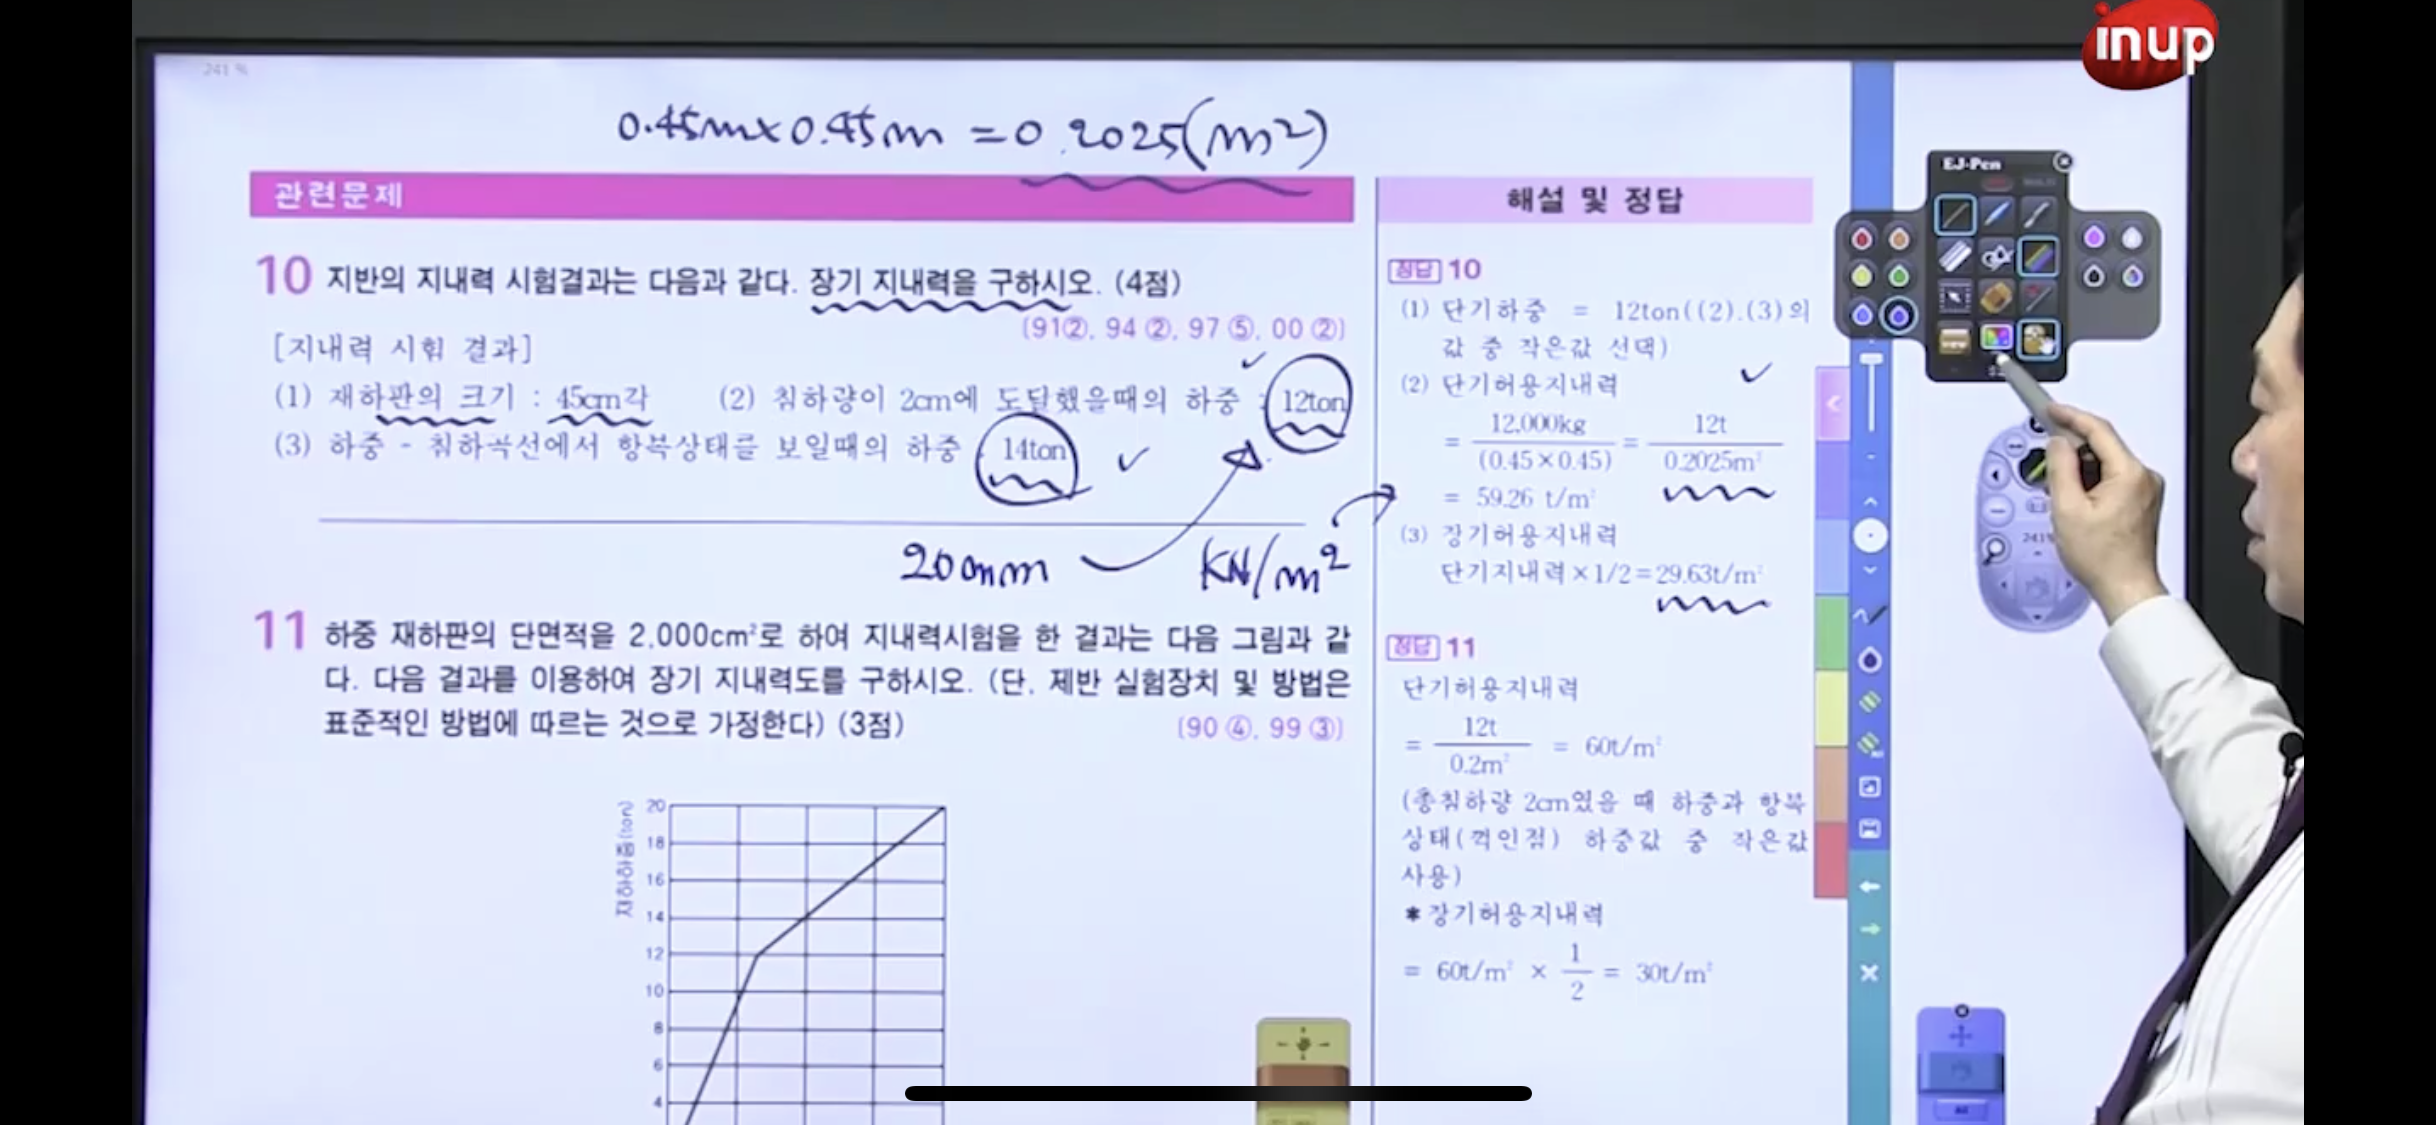 inup
241 %
0.45m×0.45m =0.2025(m²)
관련문제
10 지반의 지내력 시험결과는 다음과 같다. 장기 지내력을 구하시오. (4점)
(91②, 94 ②, 97 ⑤, 00 ②)
[지내력 시험 결과]
(1) 재하판의 크기 : 45cm각 (2) 침하량이 2cm에 도달했을때의 하중 : 12ton
(3) 하중 - 침하곡선에서 항복상태를 보일때의 하중 14ton
200mm KN/m²
11 하중 재하판의 단면적을 2,000cm²로 하여 지내력시험을 한 결과는 다음 그림과 같
다. 다음 결과를 이용하여 장기 지내력도를 구하시오. (단, 제반 실험장치 및 방법은
표준적인 방법에 따르는 것으로 가정한다) (3점) (90 ④, 99 ③)
재하하중(ton)
20
18
16
14
12
10
8
6
4
해설 및 정답
정답 10
(1) 단기하중 = 12ton((2).(3)의
값 중 작은값 선택)
(2) 단기허용지내력
= 12,000kg / (0.45×0.45) = 12t / 0.2025m²
= 59.26 t/m²
(3) 장기허용지내력
단기지내력×1/2=29.63t/m²
정답 11
단기허용지내력
= 12t / 0.2m² = 60t/m²
(총침하량 2cm였을 때 하중과 항복
상태(꺽인점) 하중값 중 작은값
사용)
*장기허용지내력
= 60t/m² × 1/2 = 30t/m²
EJ-Pen
241%